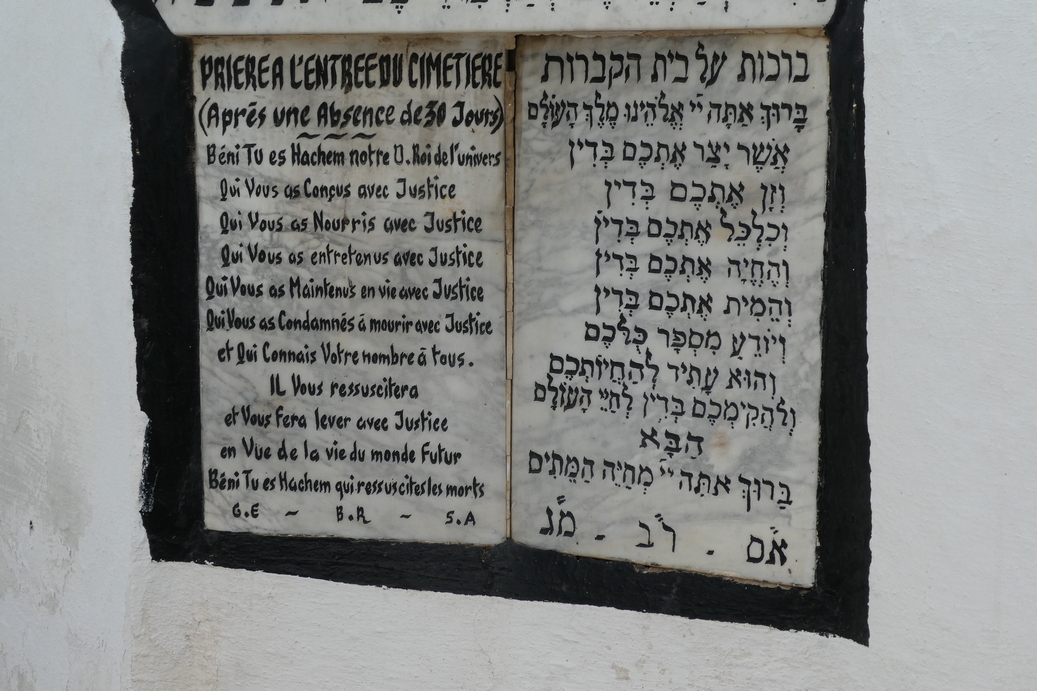 PRIERE A L'ENTREE DU CIMETIERE
(Aprés une Absence de 30 Jours)
Béni Tu es Hachem notre D. Roi de l'univers
Qui Vous as Conçus avec Justice
Qui Vous as Nourris avec Justice
Qui Vous as entretenus avec Justice
Qui Vous as Maintenus en vie avec Justice
Qui Vous as Condamnés á mourir avec Justice
et Qui Connais Votre nombre ā tous.
IL Vous ressuscitera
et Vous Fera lever avec Justice
en Vue de la vie du monde Futur
Béni Tu es Hachem qui ressuscites les morts
G.E ~ B.R ~ S.A
ברכות על בית הקברות
בָּרוּךְ אַתָּה יְיָ אֱלֹהֵינוּ מֶלֶךְ הָעוֹלָם
אֲשֶׁר יָצַר אֶתְכֶם בְּדִין
וְזָן אֶתְכֶם בְּדִין
וְכִלְכֵּל אֶתְכֶם בְּדִין
וְהֶחֱיָה אֶתְכֶם בְּדִין
וְהֵמִית אֶתְכֶם בְּדִין
וְיוֹדֵעַ מִסְפָּר כֻּלְּכֶם
וְהוּא עָתִיד לְהַחֲיוֹתְכֶם
וְלַהֲקִימְכֶם בְּדִין לְחַיֵּי הָעוֹלָם
הַבָּא
בָּרוּךְ אַתָּה יְיָ מְחַיֵּה הַמֵּתִים